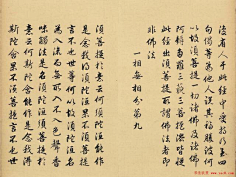 復有人於此經中受持乃至四
句偈等為他人說其福勝彼何
以故須菩提一切諸佛及諸佛
阿耨多羅三藐三菩提法皆從
此經出須菩提所謂佛法者即
非佛法
一相無相分第九
須菩提於意云何須陀洹能作
是念我得須陀洹果不須菩提
言不也世尊何以故須陀洹名
為入流而無所入不入色聲香
味觸法是名須陀洹須菩提於
意云何斯陀含能作是念我得
斯陀含果不須菩提言不也世